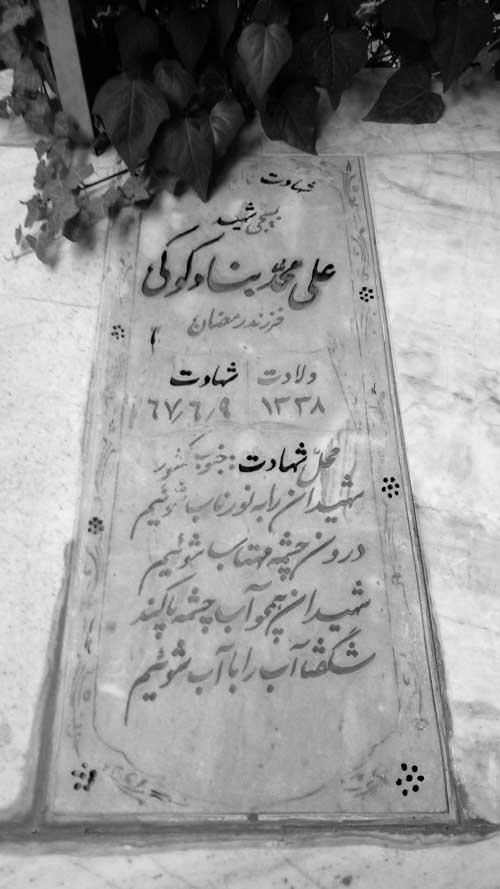 شهادت
بسیجی شهید
علی محمد بناوکوکی
فرزند رمضان
ولادت شهادت
۱۳۳۸ ۶۷/۶/۹
محل شهادت: جنوب کشور
شهیدان را به نور ناب شوئیم
درون چشمه مهتاب شوئیم
شهیدان همچو آب چشمه پاکند
شگفتا آب را با آب شوئیم